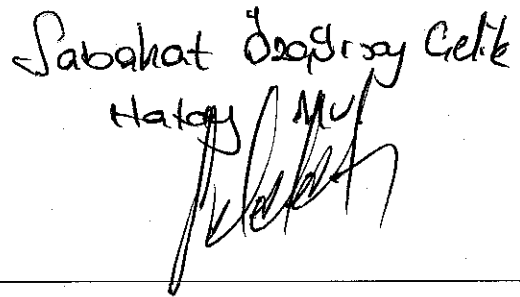 Sabahat Özgürsoy Çelik
Hatay Mv.